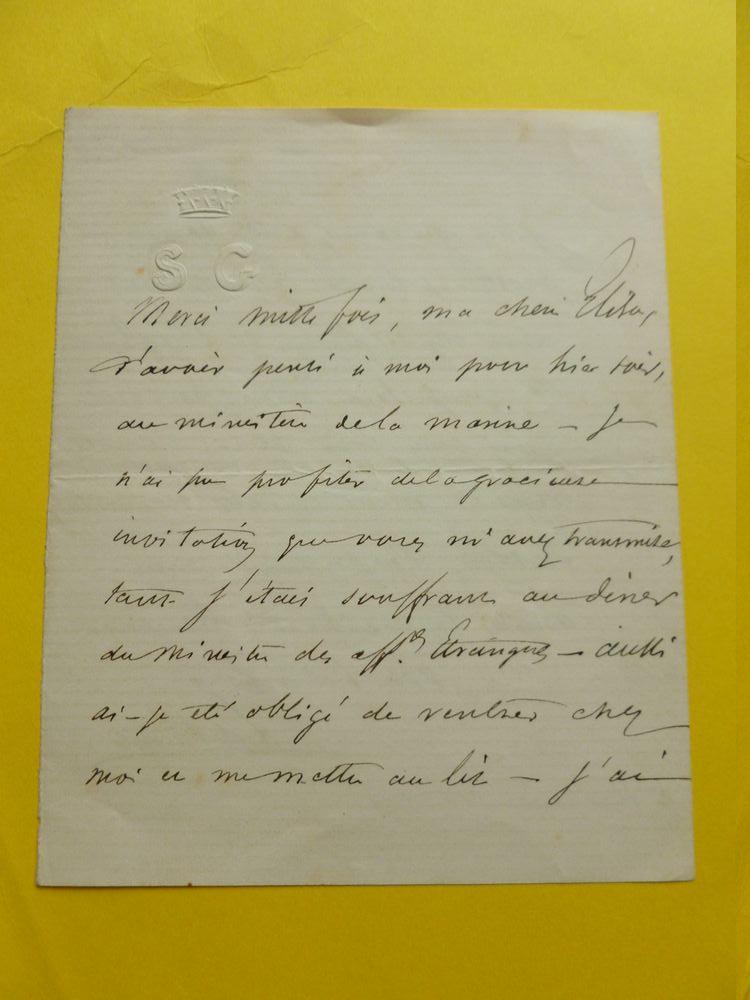 S G
Merci mille fois, ma chère Elisa,
d'avoir pensé à moi pour hier soir,
au ministère de la marine – Je
n'ai pu profiter de la gracieuse
invitation que vous m'avez transmise,
tant j'étais souffrant au dîner
du Ministre des aff.res Etrangères – aussi
ai-je été obligé de rentrer chez
moi et me mettre au lit – j'ai